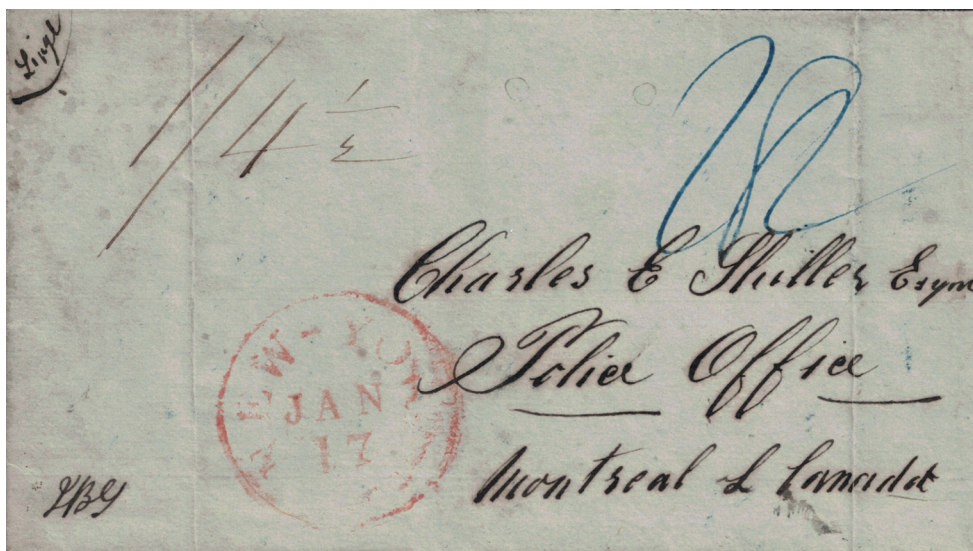 Single
1/4 1/2
Charles E Shiller Esqr
Police Office
Montreal L Canada
NEW-YORK
JAN
17